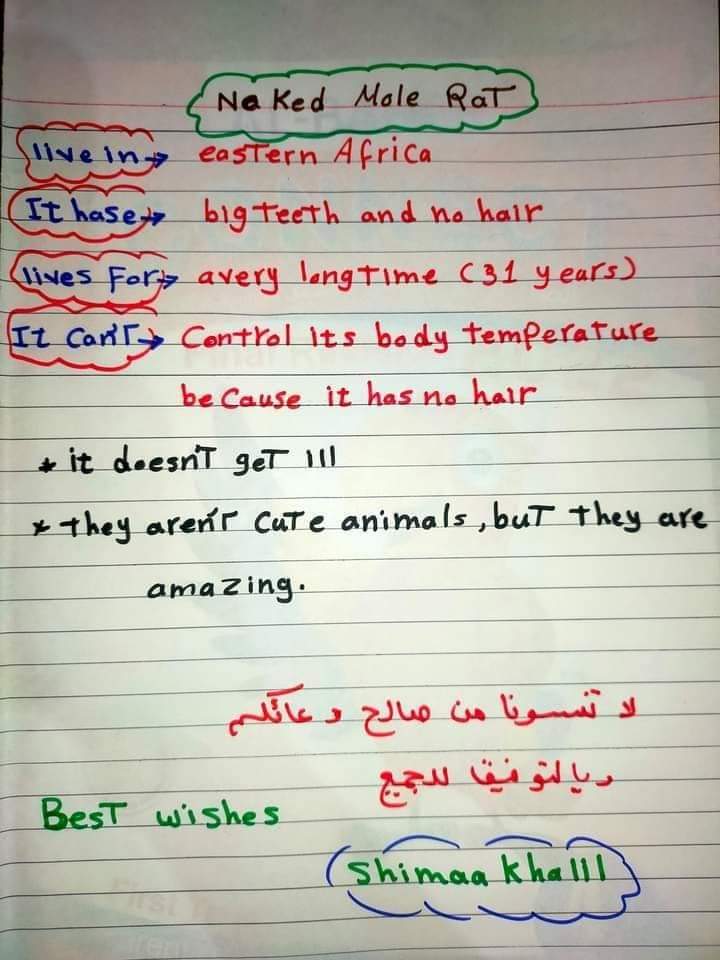 Naked Mole Rat
live in → eastern Africa
It hase → big teeth and no hair
lives For → avery long time (31 years)
It Can't → Control its body temperature
because it has no hair
* it doesn't get ill
* they aren't cute animals, but they are
amazing.
لا تنسونا من صالح دعائكم
وبالتوفيق للجميع
Best wishes
Shimaa khalil